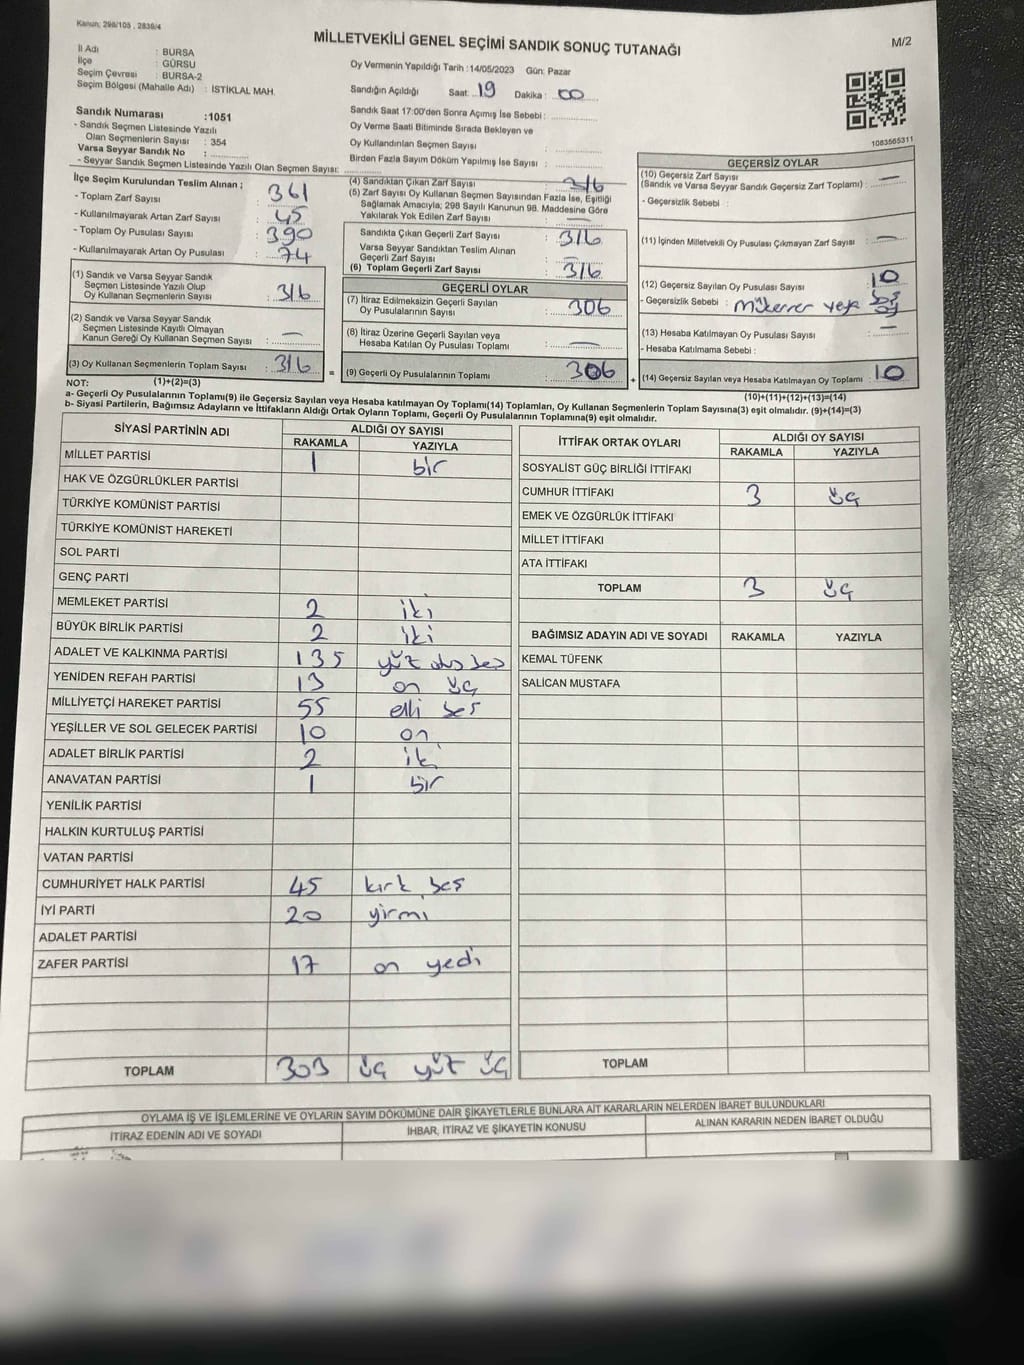 Kanun: 298/105 , 2839/4
MİLLETVEKİLİ GENEL SEÇİMİ SANDIK SONUÇ TUTANAĞI
M/2
İl Adı : BURSA
İlçe : GÜRSU
Seçim Çevresi : BURSA-2
Seçim Bölgesi (Mahalle Adı) : İSTİKLAL MAH.
Oy Vermenin Yapıldığı Tarih :14/05/2023 Gün: Pazar
Sandığın Açıldığı Saat: 19 Dakika : 00
Sandık Numarası :1051
- Sandık Seçmen Listesinde Yazılı
Olan Seçmenlerin Sayısı : 354
Varsa Seyyar Sandık No :
- Seyyar Sandık Seçmen Listesinde Yazılı Olan Seçmen Sayısı:
Sandık Saat 17:00'den Sonra Açımış İse Sebebi :
Oy Verme Saati Bitiminde Sırada Bekleyen ve
Oy Kullandırılan Seçmen Sayısı :
Birden Fazla Sayım Döküm Yapılmış İse Sayısı :
1083565311
İlçe Seçim Kurulundan Teslim Alınan ;
- Toplam Zarf Sayısı : 361
- Kullanılmayarak Artan Zarf Sayısı : 45
- Toplam Oy Pusulası Sayısı : 390
- Kullanılmayarak Artan Oy Pusulası : 74
(1) Sandık ve Varsa Seyyar Sandık
Seçmen Listesinde Yazılı Olup
Oy Kullanan Seçmenlerin Sayısı : 316
(2) Sandık ve Varsa Seyyar Sandık
Seçmen Listesinde Kayıtlı Olmayan
Kanun Gereği Oy Kullanan Seçmen Sayısı : —
(3) Oy Kullanan Seçmenlerin Toplam Sayısı : 316
(4) Sandıktan Çıkan Zarf Sayısı : 316
(5) Zarf Sayısı Oy Kullanan Seçmen Sayısından Fazla İse, Eşitliği
Sağlamak Amacıyla; 298 Sayılı Kanunun 98. Maddesine Göre
Yakılarak Yok Edilen Zarf Sayısı : —
Sandıkta Çıkan Geçerli Zarf Sayısı : 316
Varsa Seyyar Sandıktan Teslim Alınan
Geçerli Zarf Sayısı : —
(6) Toplam Geçerli Zarf Sayısı : 316
GEÇERLİ OYLAR
(7) İtiraz Edilmeksizin Geçerli Sayılan
Oy Pusulalarının Sayısı : 306
(8) İtiraz Üzerine Geçerli Sayılan veya
Hesaba Katılan Oy Pusulası Toplamı : —
= (9) Geçerli Oy Pusulalarının Toplamı : 306
GEÇERSİZ OYLAR
(10) Geçersiz Zarf Sayısı
(Sandık ve Varsa Seyyar Sandık Geçersiz Zarf Toplamı) : —
- Geçersizlik Sebebi :
(11) İçinden Milletvekili Oy Pusulası Çıkmayan Zarf Sayısı : —
(12) Geçersiz Sayılan Oy Pusulası Sayısı : 10
- Geçersizlik Sebebi : Mükerrer veya boş
(13) Hesaba Katılmayan Oy Pusulası Sayısı : —
- Hesaba Katılmama Sebebi :
+ (14) Geçersiz Sayılan veya Hesaba Katılmayan Oy Toplamı : 10
NOT: (1)+(2)=(3)
(10)+(11)+(12)+(13)=(14)
a- Geçerli Oy Pusulalarının Toplamı(9) ile Geçersiz Sayılan veya Hesaba katılmayan Oy Toplamı(14) Toplamları, Oy Kullanan Seçmenlerin Toplam Sayısına(3) eşit olmalıdır. (9)+(14)=(3)
b- Siyasi Partilerin, Bağımsız Adayların ve İttifakların Aldığı Ortak Oyların Toplamı, Geçerli Oy Pusulalarının Toplamına(9) eşit olmalıdır.
SİYASİ PARTİNİN ADI ALDIĞI OY SAYISI
RAKAMLA YAZIYLA
MİLLET PARTİSİ 1 bir
HAK VE ÖZGÜRLÜKLER PARTİSİ
TÜRKİYE KOMÜNİST PARTİSİ
TÜRKİYE KOMÜNİST HAREKETİ
SOL PARTİ
GENÇ PARTİ
MEMLEKET PARTİSİ 2 iki
BÜYÜK BİRLİK PARTİSİ 2 iki
ADALET VE KALKINMA PARTİSİ 135 yüz otuz beş
YENİDEN REFAH PARTİSİ 13 on üç
MİLLİYETÇİ HAREKET PARTİSİ 55 elli beş
YEŞİLLER VE SOL GELECEK PARTİSİ 10 on
ADALET BİRLİK PARTİSİ 2 iki
ANAVATAN PARTİSİ 1 bir
YENİLİK PARTİSİ
HALKIN KURTULUŞ PARTİSİ
VATAN PARTİSİ
CUMHURİYET HALK PARTİSİ 45 kırk beş
İYİ PARTİ 20 yirmi
ADALET PARTİSİ
ZAFER PARTİSİ 17 on yedi
TOPLAM 303 üç yüz üç
İTTİFAK ORTAK OYLARI ALDIĞI OY SAYISI
RAKAMLA YAZIYLA
SOSYALİST GÜÇ BİRLİĞİ İTTİFAKI
CUMHUR İTTİFAKI 3 üç
EMEK VE ÖZGÜRLÜK İTTİFAKI
MİLLET İTTİFAKI
ATA İTTİFAKI
TOPLAM 3 üç
BAĞIMSIZ ADAYIN ADI VE SOYADI RAKAMLA YAZIYLA
KEMAL TÜFENK
SALİCAN MUSTAFA
TOPLAM
OYLAMA İŞ VE İŞLEMLERİNE VE OYLARIN SAYIM DÖKÜMÜNE DAİR ŞİKAYETLERLE BUNLARA AİT KARARLARIN NELERDEN İBARET BULUNDUKLARI
İTİRAZ EDENİN ADI VE SOYADI İHBAR, İTİRAZ VE ŞİKAYETİN KONUSU ALINAN KARARIN NEDEN İBARET OLDUĞU